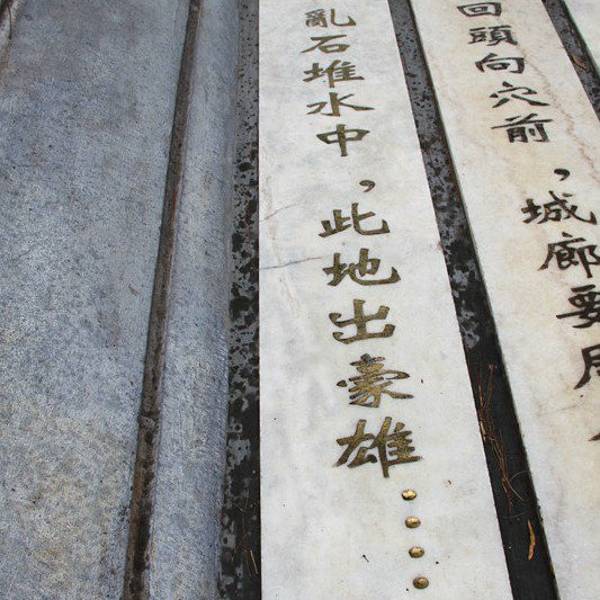 回頭向穴前，城廊要
亂石堆水中，此地出豪雄····